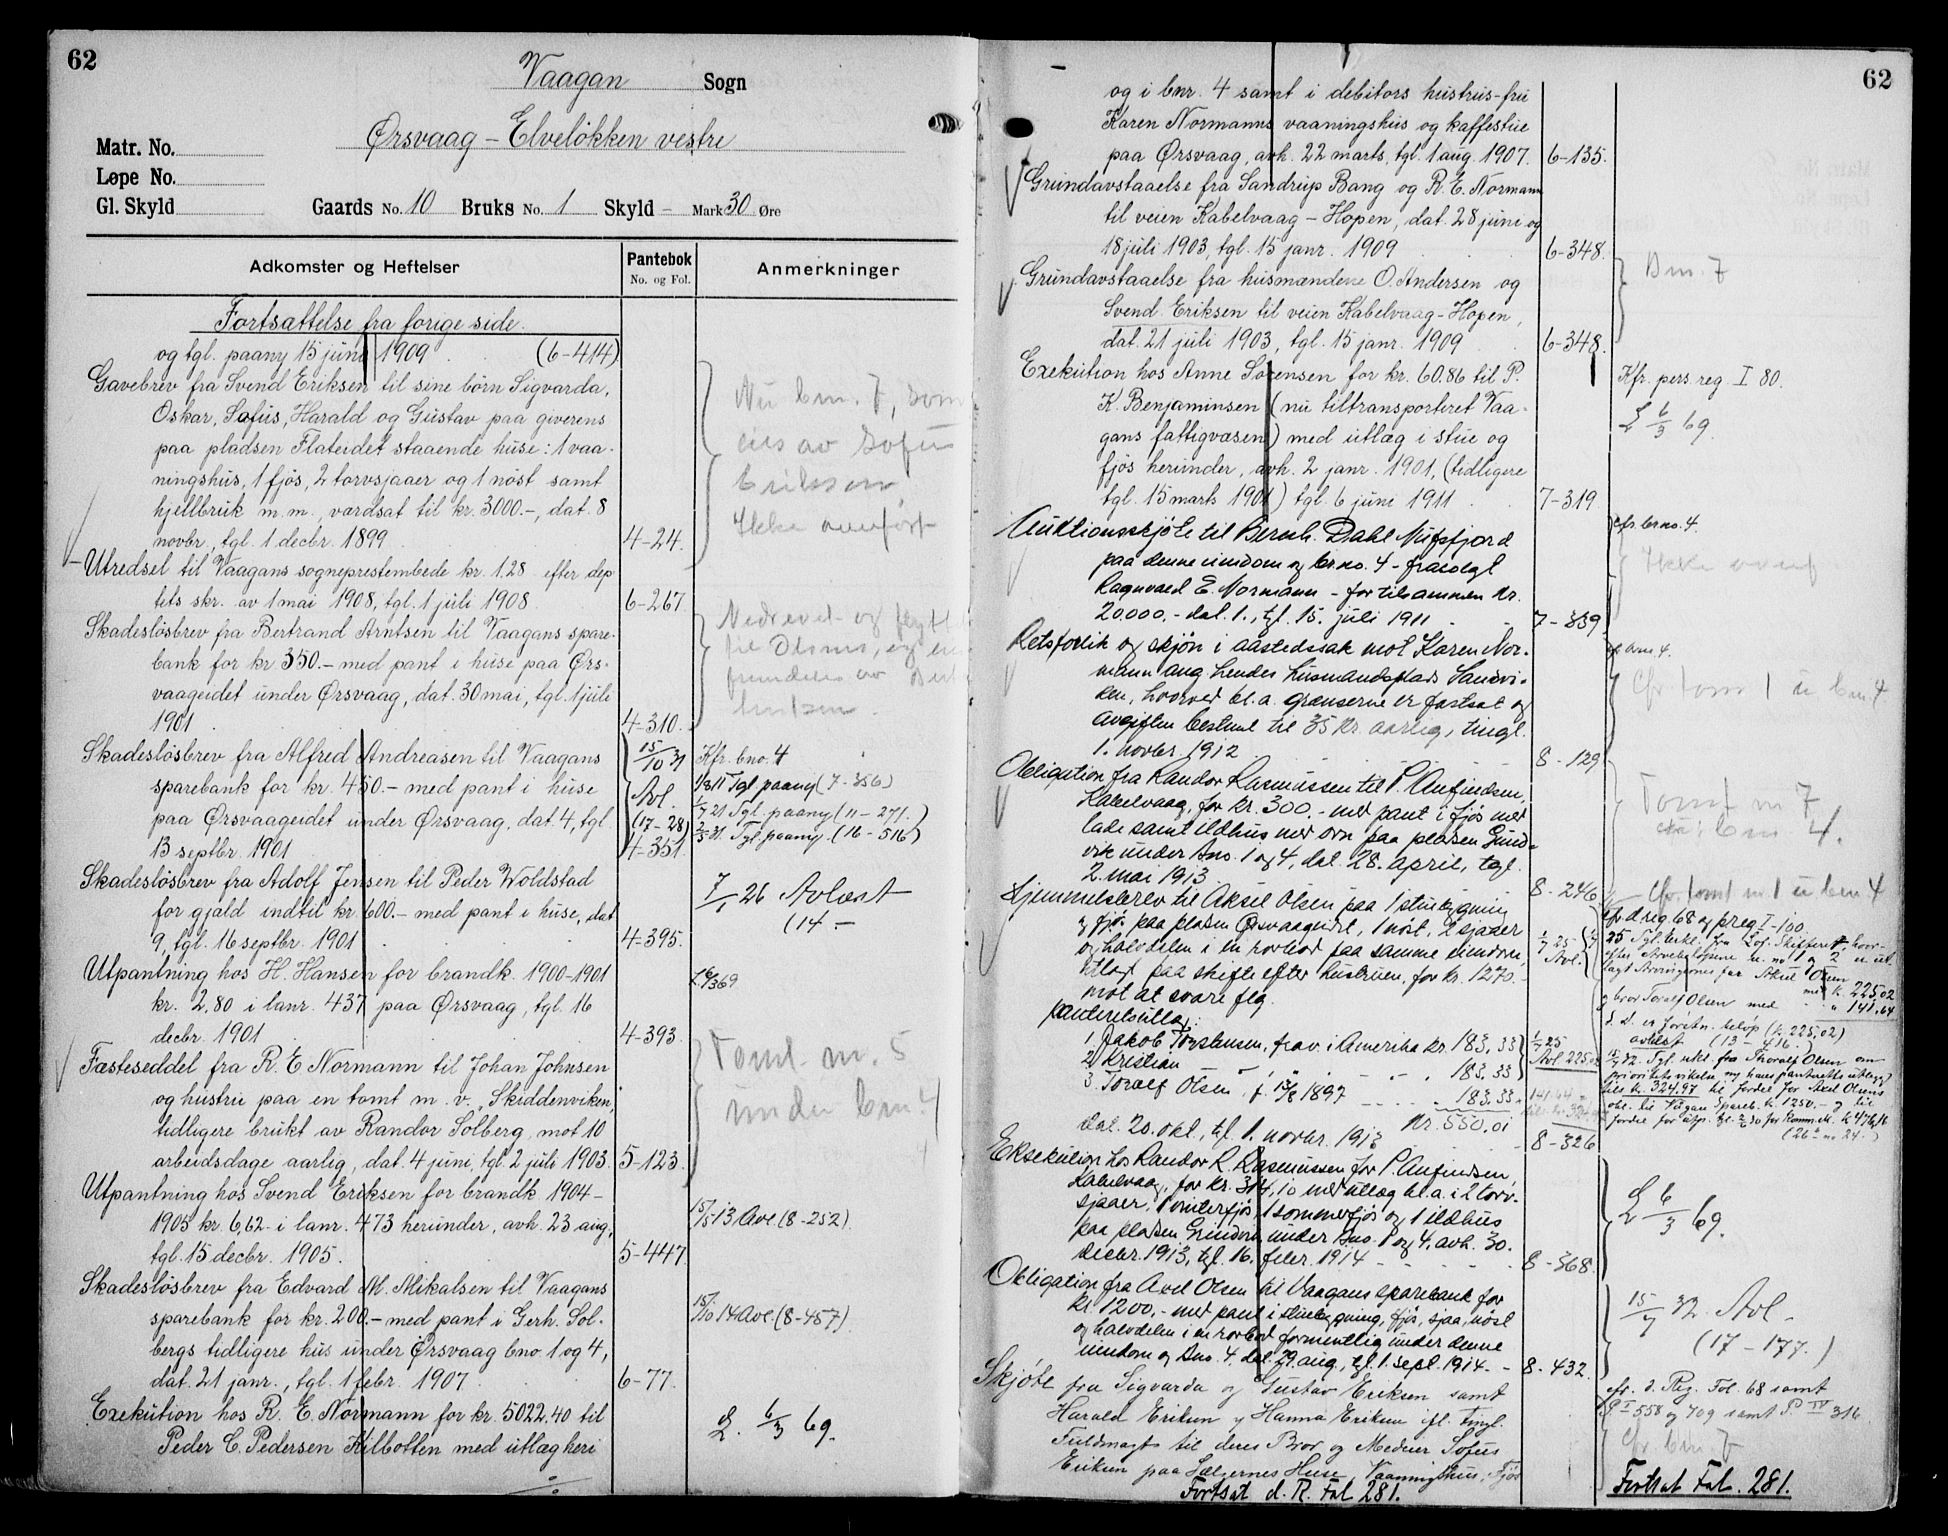 62
Vaagan Sogn
Ørsvaag – Elveløkken vestre
Matr. No.
Løpe No.
Gl. Skyld
Gaards No. 10 Bruks No. 1 Skyld – Mark 30 Øre
Adkomster og Heftelser
Pantebok
No. og Fol.
Anmerkninger
Fortsættelse fra forige side
og tgl. paany 15 juni 1909 (6-414)
Gavebrev fra Svend Eriksen til sine børn Sigvarda,
Oskar, Sofus, Harald og Gustav paa giverens
paa pladsen Flateidet staaende huse: 1 vaa-
ningshus, 1 fjøs, 2 torvsjaaer og 1 nöst samt
hjellbruk m.m., værdsat til kr. 3000.-, dat. 8
novbr., tgl. 1 decbr. 1899 4-24.
Nu bnr. 7, som
eies av Sofus
Eriksen,
Ikke overført
Utredsel til Vaagans sogneprestembede kr. 1,28 efter dep-
tets skr. av 1 mai 1908, tgl. 1 juli 1908. 6-267.
Skadesløsbrev fra Bertrand Arntsen til Vaagans spare-
bank for kr. 350.- med pant i huse paa Ørs-
vaageidet under Ørsvaag, dat. 30 mai, tgl. 1 juli
1901 4-310.
Nedrevet og flytt
til Olsnes, og
Skadesløsbrev fra Alfred Andreasen til Vaagans
sparebank for kr. 450.- med pant i huse
paa Ørsvaageidet under Ørsvaag, dat. 4, tgl.
13 septbr. 1901 4-351.
15/10 31
Avl.
(17-28)
Kfr. bno. 4
1/8 11 Tgl paany (7-356)
1/7 21 Tgl. paany (11-271.)
2/5 31 Tgl paany (16-516)
Skadesløsbrev fra Adolf Jensen til Peder Woldstad
for gjæld indtil kr. 600.- med pant i huse, dat.
9, tgl. 16 septbr. 1901 4-395.
7/1 26 Avlæst
(14-
Utpantning hos H. Hansen for brandk. 1900-1901
kr. 2,80 i lanr. 437 paa Ørsvaag, tgl. 16
decbr. 1901 4-393.
L 6/3 69
Fæsteseddel fra R. E. Normann til Johan Johnsen
og hustru paa en tomt m. v. „Skiddenviken,
tidligere brukt av Randor Solberg, mot 10
arbeidsdage aarlig, dat. 4 juni, tgl. 2 juli 1903. 5-123.
Tomt nr. 5
under bnr. 4
Utpantning hos Svend Eriksen for brandk. 1904-
1905 kr. 6,62 i lanr. 473 herunder, avh. 23 aug,
tgl. 15 decbr. 1905. 5-447.
15/5 13 Avl. (8-252)
Skadesløsbrev fra Edvard M. Mikalsen til Vaagans
sparebank for kr. 200.- med pant i Gerh. Sol-
bergs tidligere hus under Ørsvaag bno. 1 og 4,
dat. 21 janr., tgl. 1 febr. 1907. 6-77.
15/10 14 Avl. (8-457)
Exekution hos R. E. Normann for kr. 5022.40 til
Peder C. Pedersen Kilbotten med utlæg heri
L. 6/3 69.
62
og i bnr. 4 samt i debitors hustrus-fru
Karen Normanns vaaningshus og kaffestue
paa Ørsvaag, avh. 22 marts, tgl. 1 aug. 1907. 6-135.
Grundavstaaelse fra Sandrup Bang og R. E. Normann
til veien Kabelvaag – Hopen, dat. 28 juni og
18 juli 1903, tgl. 15 janr. 1909 6-348.
Grundavstaaelse fra husmændene O. Andersen og
Svend Eriksen til veien Kabelvaag-Hopen,
dat. 21 juli 1903, tgl. 15 janr. 1909 6-348.
Bnr. 7
Exekution hos Anne Sørensen for kr. 60.86 til P.
K. Benjaminsen (nu tiltransporteret Vaa-
gans fattigvæsen) med utlæg i stue og
fjös herunder, avh. 2 janr. 1901, (tidligere
tgl. 15 marts 1901) tgl. 6 juni 1911 7-319
Kfr. pers. reg. I 80.
L 6/3 69.
Auktionsskjøte til Bernh. Dahl Nufsfjord
paa denne eiendom og brno. 4 – frasolgt
Ragnvald E. Normann – for tilsammen kr.
20.000.- dat. 1., tgl. 15. juli 1911 7-339
cfr. brno. 4.
Ikke overf
Retsforlik og skjøn i aastedssak mot Karen Nor-
mann ang. hendes husmandsplads Sandvi-
ken, hvorved bl.a. grænserne er fastsat og
avgiften bestemt til 35 kr. aarlig, tingl.
1. novbr. 1912 8-129
cfr. bnr. 4.
Cfr. tomt 1 u bnr. 4
Obligation fra Randor Rasmussen til P. Anfindsen,
Kabelvaag, for kr. 300.- med pant i fjøs med
lade samt ildhus med ovn paa pladsen Grund-
vik under bno. 1 og 4, dat. 28. april, tgl.
2. mai 1913. 8-246
Tomt nr 7
bnr. 4.
Hjemmelsbrev til Aksel Olsen paa 1 stuebygning
og fjøs paa pladsen Ørsvaageidet, 1 nøst, 2 sjaaer
og halvdelen i en rorbod paa samme eiendom,
utlagt paa skifte efter hustruen, for kr. 1270.-
mot at svare flg.
panteretsutlæg:
1. Jakob Torstensen, frav. i Amerika kr. 183,33
2. Kristian " " 183.33
3. Toralf Olsen, f. 13/8 1897 183.33
Kr. 550.01
dat. 20. okt., tgl. 1. novbr. 1913 8-326
1/7 25 Avl.
Cfr. tomt nr 1 u bnr 4
cfr. d. reg. 68 og preg I-100
og bror Toralf Olsen med " 141,64
avlæst (13-416.)
(26 2 nr 24.)
Eksekution hos Randor R. Rasmussen for P. Anfindsen,
Kabelvaag, for kr. 314,10 med utlæg bl.a. i 2 torv-
sjaaer, 1 vinterfjøs, 1 sommerfjøs og 1 ildhus
paa pladsen Grundvik under bno. 1 og 4, avh. 30.
decbr. 1913, tgl. 16. febr. 1914 8-368.
L 6/3 69.
Obligation fra Axel Olsen til Vaagans sparebank for
kr. 1200.- med pant i stuebygning, fjøs, sjaa, nøst
og halvdelen i en rorbod formentlig under denne
eiendom og bno. 4. dat. 29. aug., tgl. 1. sept. 1914. - 8-432.
15/7 32 Avl.
(17-177.)
Skjøte fra Sigvarda og Gustav Eriksen samt
Harald Eriksen og Hanna Eriksen ifl. tingl.
Fuldmagt til deres Bror og Medeier Sofus
Eriksen paa Sælgernes Huse, Vaaningshus, Fjøs
cfr. d. Reg. Fol. 68 samt
P I 558 og 709 samt P IV 316
Cfr. bnr. 7
Fortsat d. R. Fol 281.
Fortsat Fol. 281.